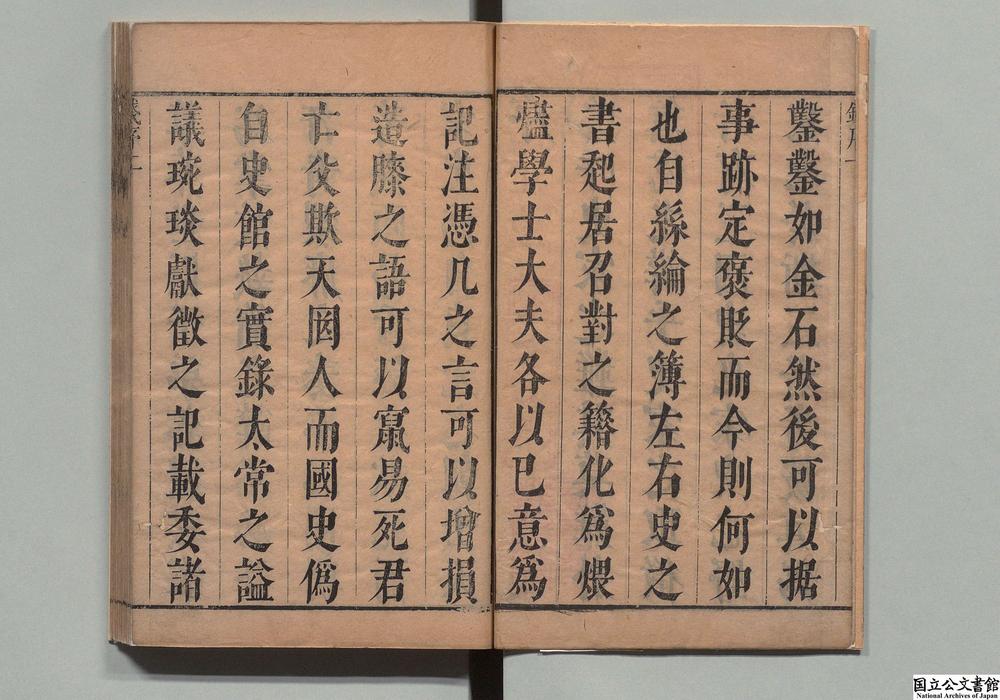 鑿鑿如金石然後可以据
事跡定褒貶而今則何如
也自絲綸之簿左右史之
書起居召對之籍化爲煨
燼學士大夫各以已意爲
記注憑几之言可以增損
造膝之語可以竄易死君
亡父欺天罔人而國史僞
自史館之實錄太常之謚
議琬琰獻徵之記載委諸
国立公文書館
National Archives of Japan